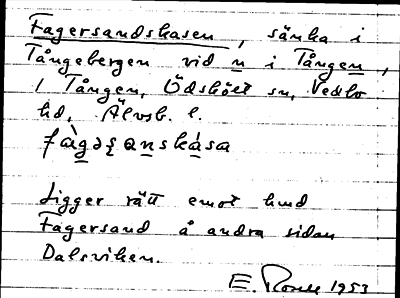 Fagersandskasen, sänka i
Tångebergen vid n i Tången,
1 Tången, Ödskölt sn, Vedbo
hd, Älvsb. l.
fàgəʂanskàsa
Ligger rätt emot hmd
Fagersand å andra sidan
Dalsviken.
E. 1953